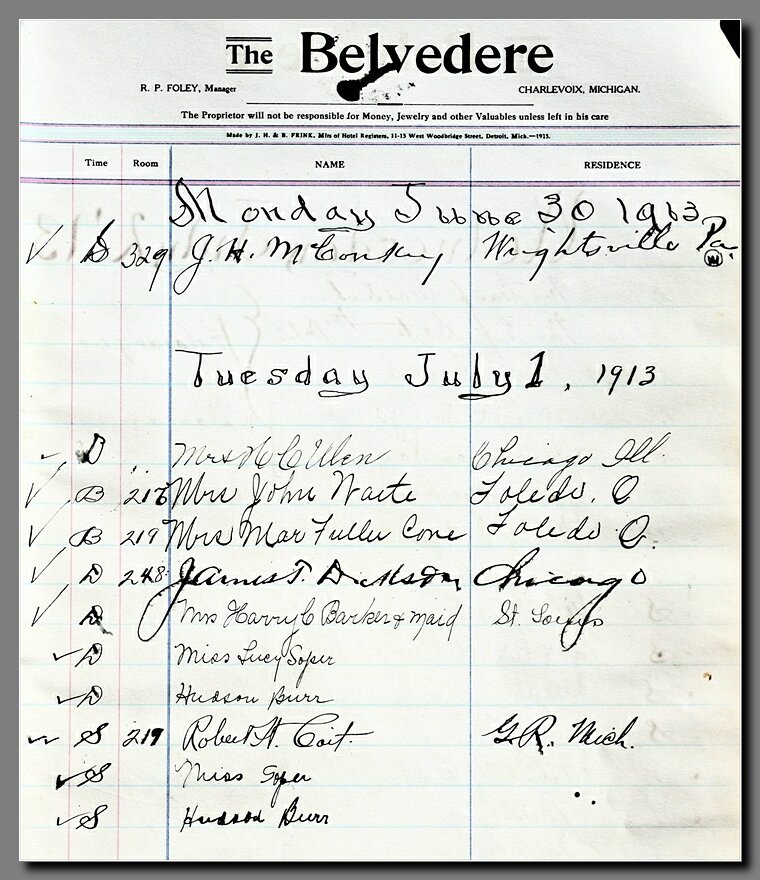 The Belvedere
R. P. FOLEY, Manager CHARLEVOIX, MICHIGAN.
The Proprietor will not be responsible for Money, Jewelry and other Valuables unless left in his care
Made by J. H. & B. FRINK, Mfrs of Hotel Registers, 11-15 West Woodbridge Street, Detroit, Mich.—1913.
Time Room NAME RESIDENCE
Monday June 30 1913
✓ D 329 J. H. McConkey Wrightsville Pa.
W
Tuesday July 1, 1913
✓ D " Mrs Chicago Ill.
✓ B 217 Mrs John Waite Toledo, O
✓ B 219 Mrs Mar Fuller Cone Toledo O.
✓ D 248 James T. Chicago
✓ D Mrs Harry C Barker & maid St. Louis
✓ D Miss Lucy Soper
✓ D Hudson Burr
✓ S 219 Robert H. Coit. G.R. Mich.
✓ S Miss Soper
✓ S Hudson Burr